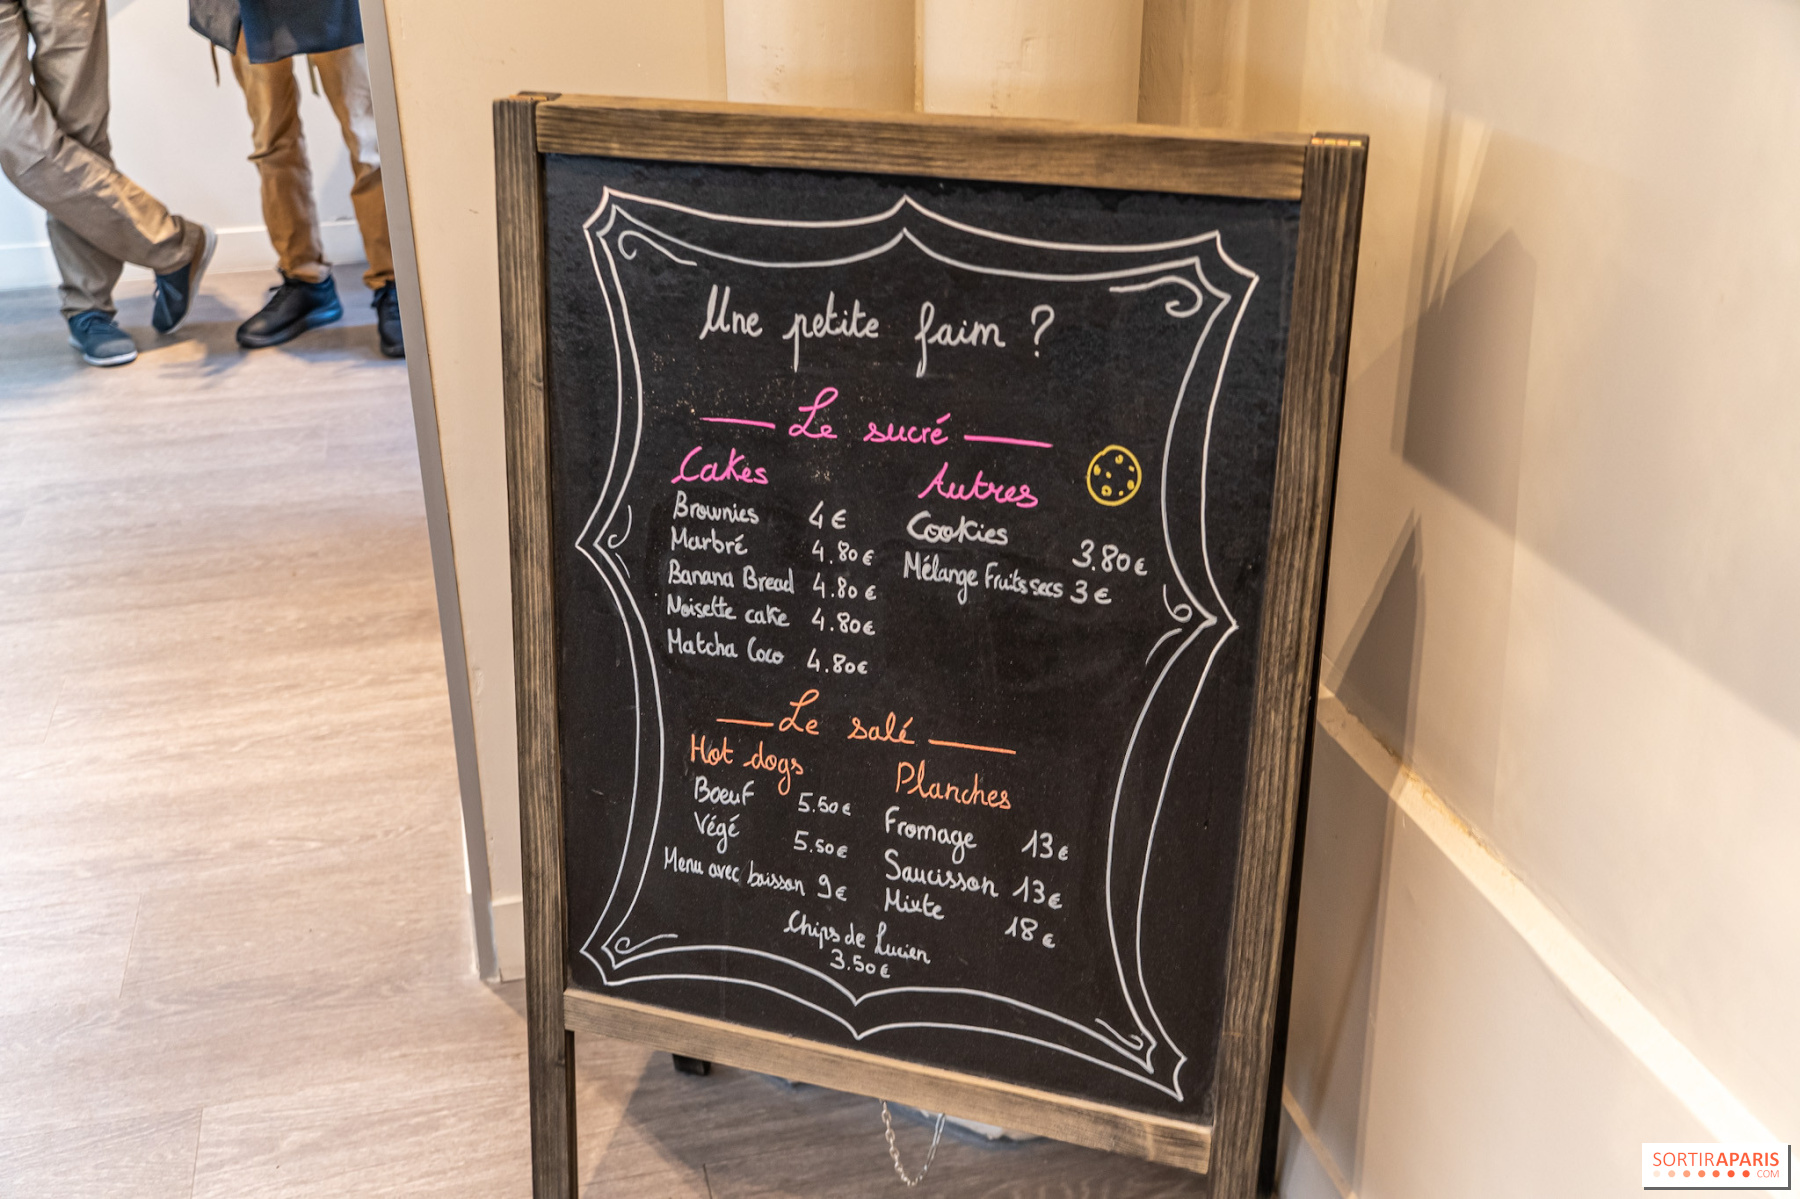 Une petite faim ?
Le sucré
Cakes
Brownies 4€
Marbré 4.80€
Banana Bread 4.80€
Noisette cake 4.80€
Matcha Coco 4.80€
Autres
Cookies 3.80€
Mélange Fruits secs 3€
Le salé
Hot dogs
Boeuf 5.50€
Végé 5.50€
Menu avec boisson 9€
Planches
Fromage 13€
Saucisson 13€
Mixte 18€
Chips de Lucien
3.50€
SORTIRAPARIS
.COM